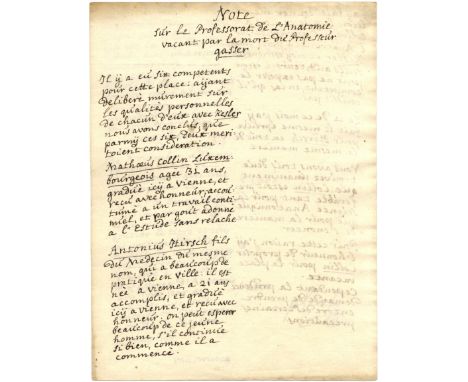 Note
sur le Professorat de L'Anatomie
vacant par la mort du Professeur
gasser
Il ÿ a eu six competents
pour cette place: aÿant
deliberé mûrement sur
les qualités personnelles
de chacun d'eux avec
nous avons conclus, que
parmÿ ces six, deux meri
toient consideration:
Mathæus Collin Luxem
bourgeois ageé 31 ans,
gradué icÿ a Vienne, et
recu avec honneur, accou
tumé a un travail conti
nuel, et par gout adonné
a l'Estude sans relache
Antonius Störck fils
du Medecin du mesme
nom, qui a beaucoup de
pratique en ville: il est
neé a Vienne, a 21 ans
accomplis, et gradué
icÿ a vienne, et recu avec
honneur. on peut esperer
beaucoup de ce jeune
homme, s'il continue
si bien, comme il a
commencé.